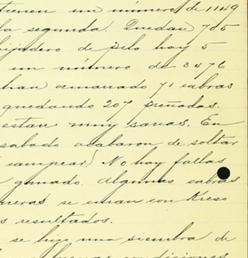 tienen un número de 1149
la segunda. Quedan 705
de pelo hoy 5
un número de 3476
han amarrado 71 cabras
quedando 207 preñadas.
estan muy sanas. En
sabado acabaron de soltar
campear) No hay fallas
ganado. Algunas cabras
se curan con Kreso
s resultados.
se hizo una siembra de